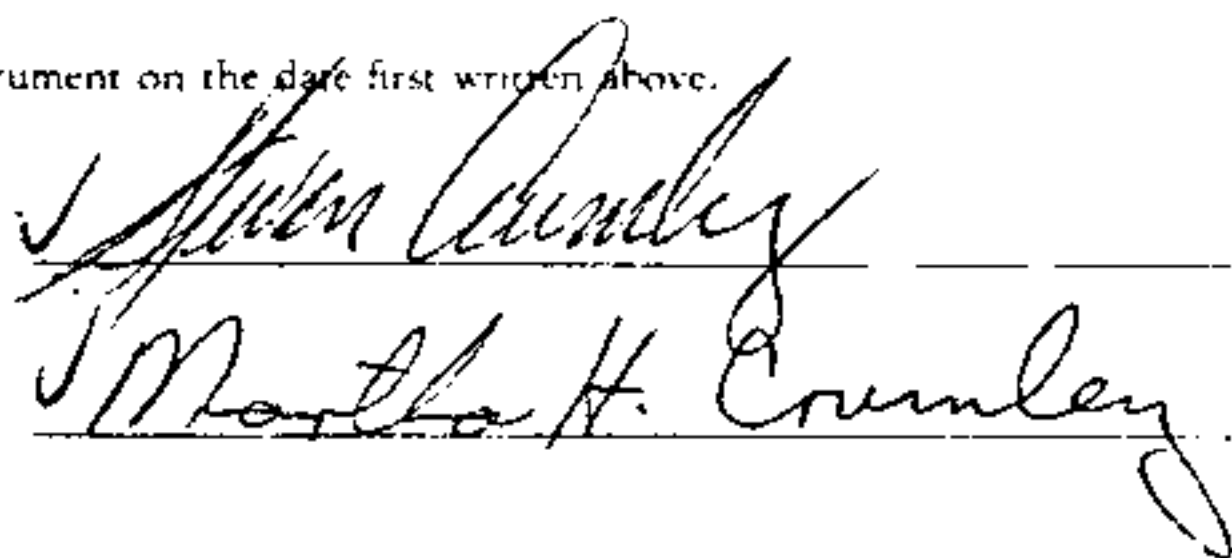 ument on the date first written above.
Steven Crumley
Martha H. Crumley